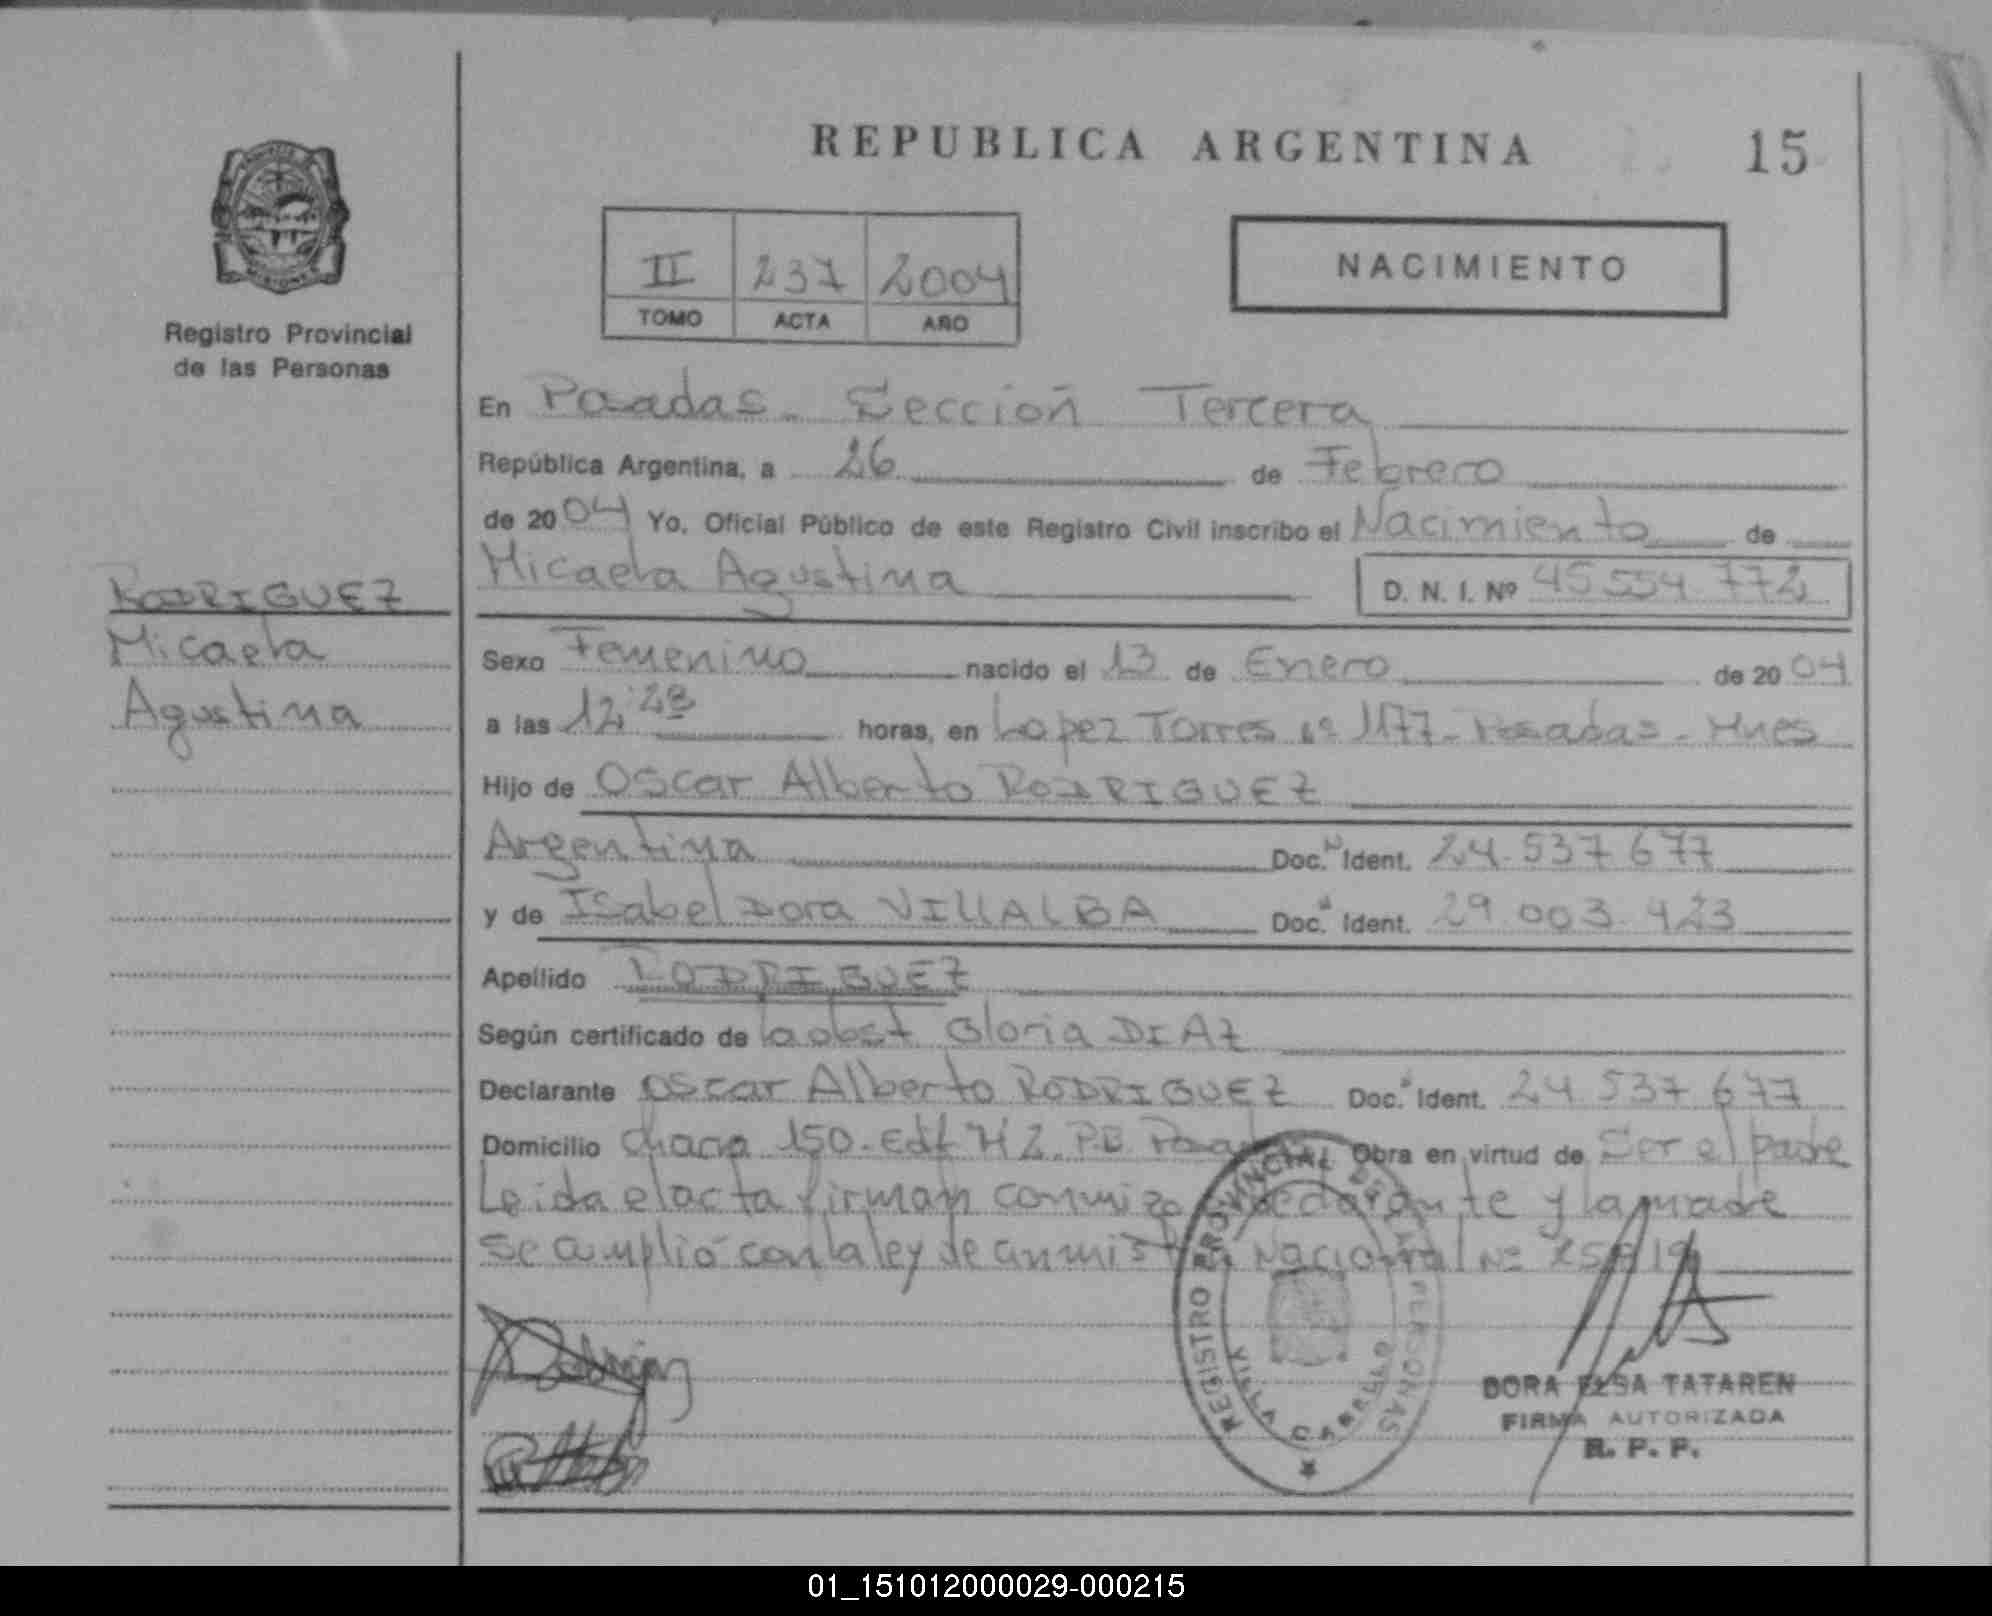 REPUBLICA ARGENTINA
15
II 237 2004
TOMO ACTA AÑO
NACIMIENTO
Registro Provincial
de las Personas
RODRIGUEZ
Micaela
Agustina
En Posadas - Sección Tercera
República Argentina, a 26 de Febrero
de 2004 Yo, Oficial Público de este Registro Civil inscribo el Nacimiento de
Micaela Agustina D. N. I. Nº 45 554 772
Sexo Femenino nacido el 13 de Enero de 2004
a las 12 horas, en Lopez Torres nº 1177 - Posadas - Mnes
Hijo de Oscar Alberto RODRIGUEZ
Argentina Doc. Ident. 24.537 677
y de Isabel Dora VILLALBA Doc. Ident. 29.003.423
Apellido RODRIGUEZ
Según certificado de la obst Gloria DIAZ
Declarante Oscar Alberto RODRIGUEZ Doc. Ident. 24 537 677
Domicilio Chacra 150 - Edf H 2 P.B. Obra en virtud de Ser el padre
Leida el acta firman conmigo declarante y la madre
se cumplió con la ley de Nacional Nº
REGISTRO PROVINCIAL DE LAS PERSONAS
VILLA CABELLO
DORA ELSA TATAREN
FIRMA AUTORIZADA
R. P. P.
01_151012000029-000215